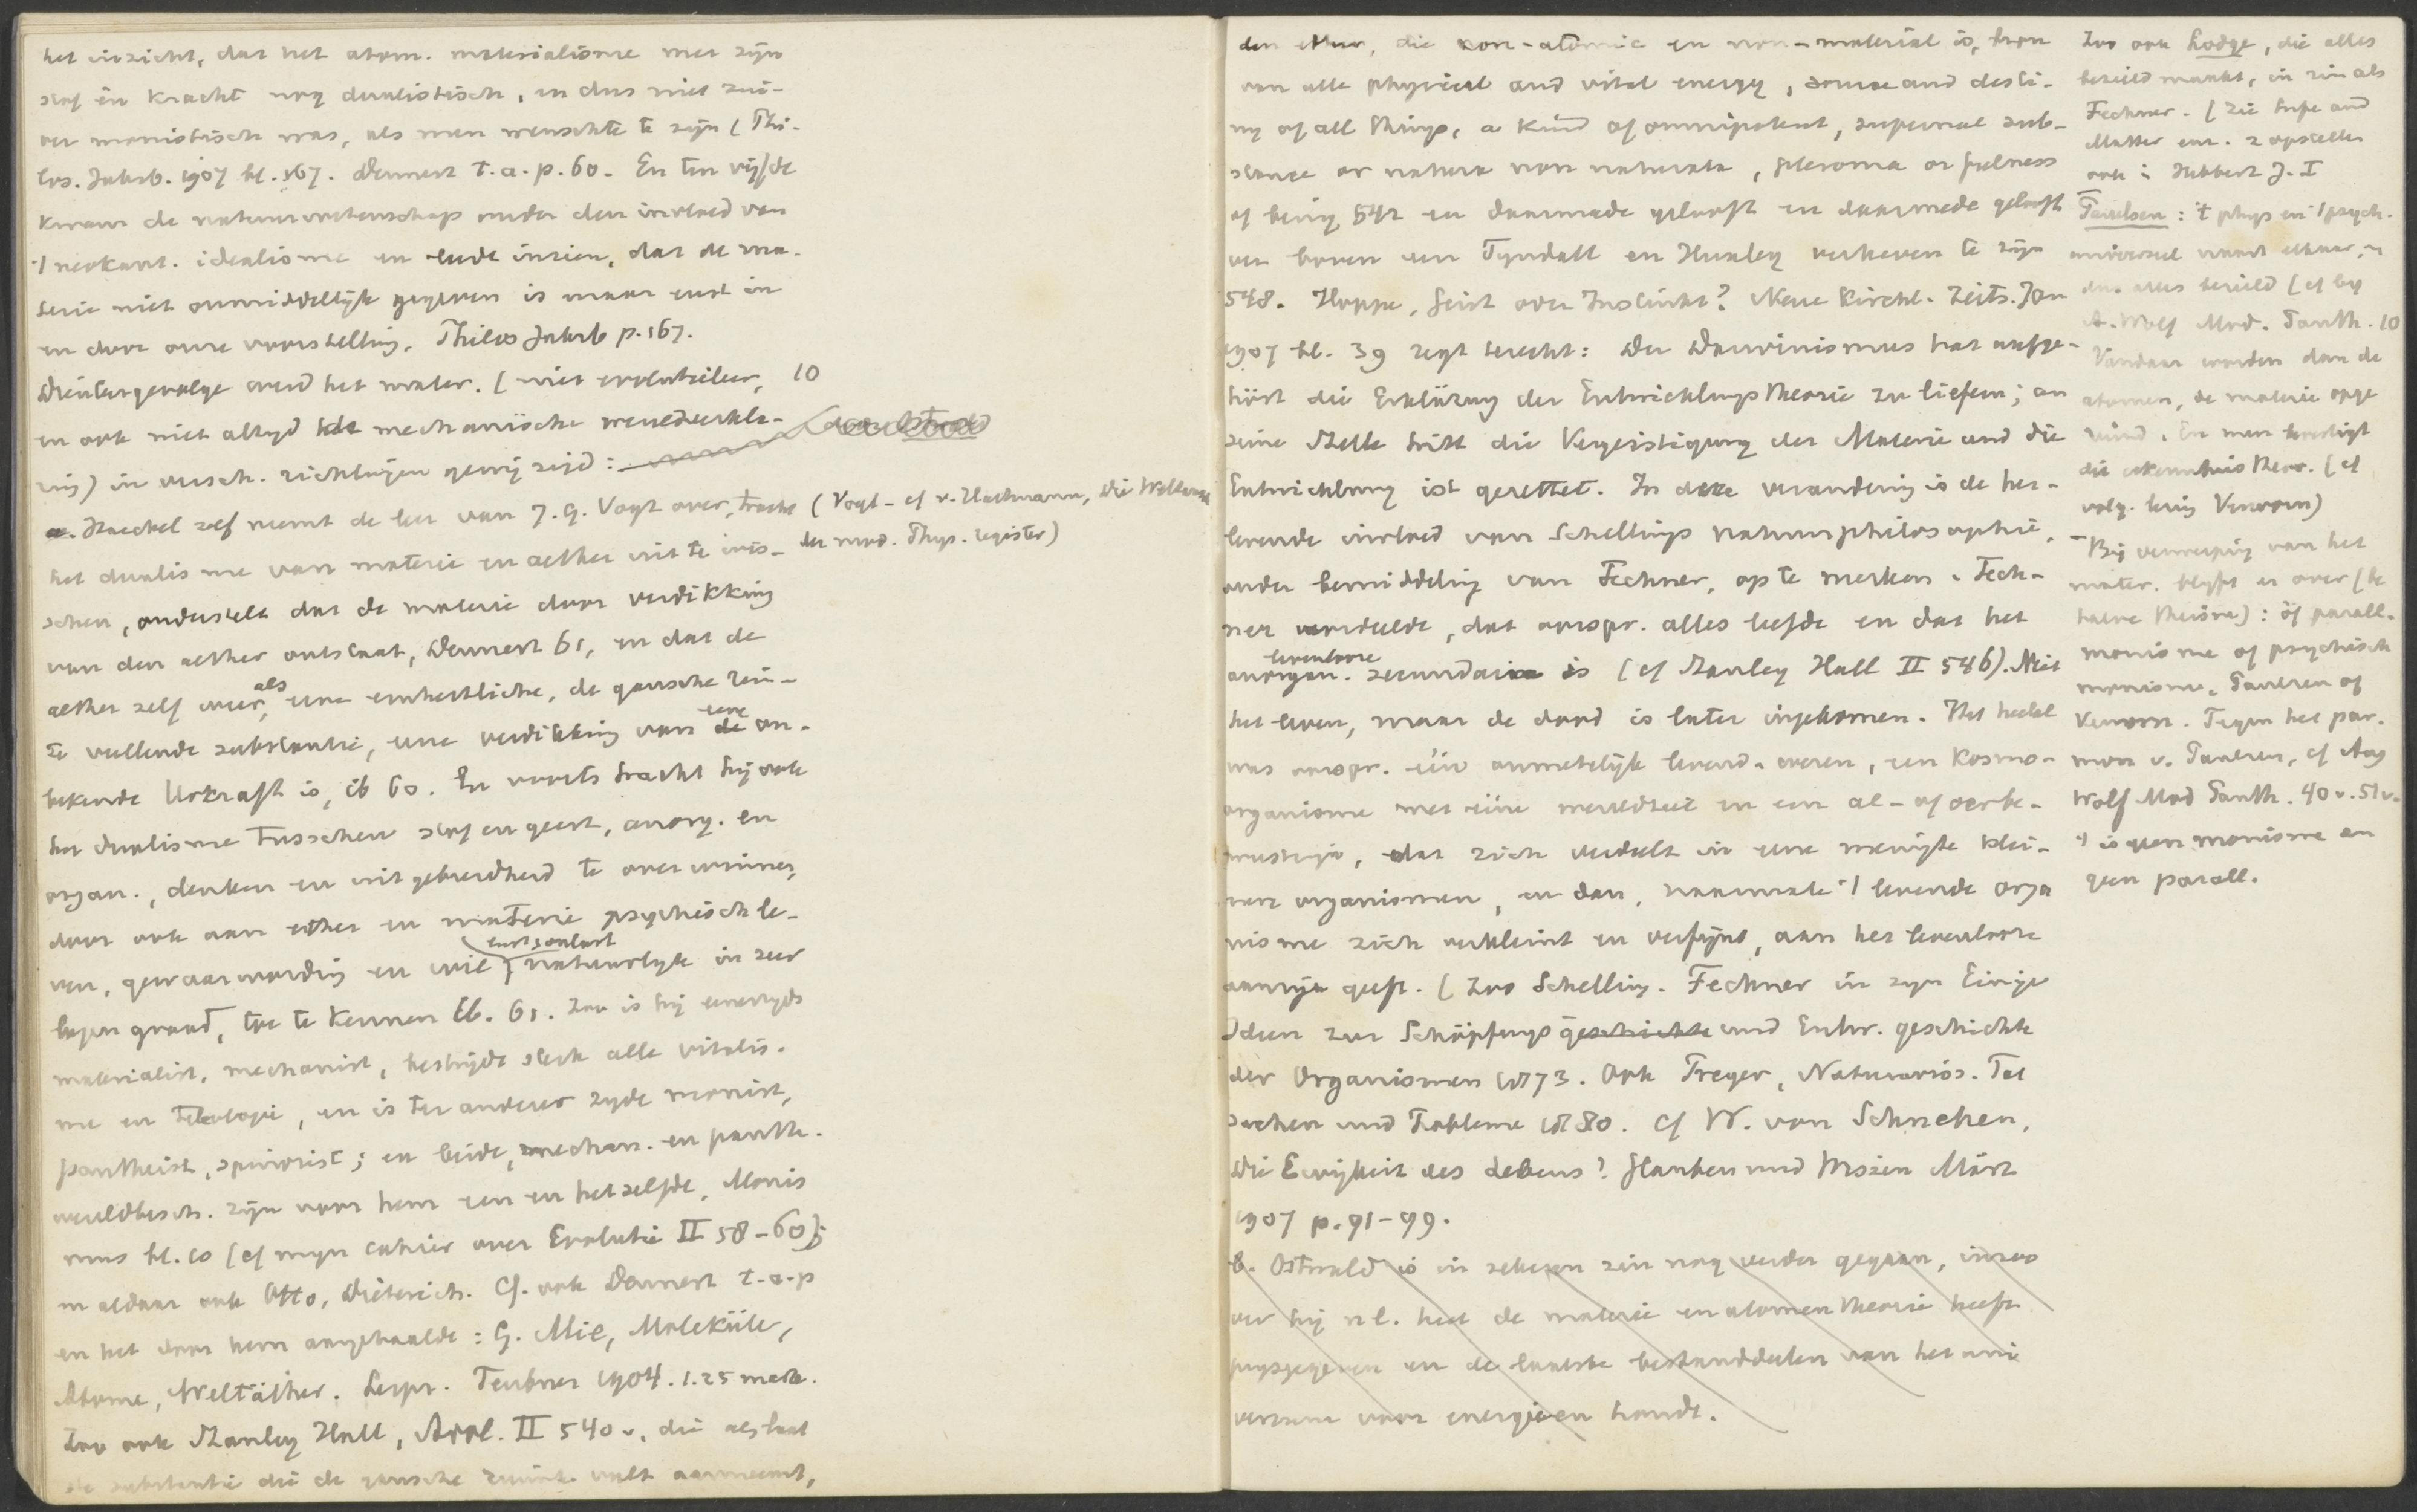 het inzicht, dat het atom. materialisme met zijn
stof en kracht nog dualistisch, en dus niet zui-
ver monistisch was, als men wenschte te zijn (Phi-
los. Jahrb. 1907 bl. 167. Dennert t.a.p. 60. En ten vijfde
kwam de natuurwetenschap onder den invloed van
't neokant. idealisme en leerde inzien, dat de ma-
terie niet onmiddellijk gegeven is maar eerst in
en door onze voorstelling. Philos Jahrb p. 167.
Dientengevolge werd het mater. (niet evolutieleer, 10
en ook niet altyd de mechanische wereldverkla-
ring) in versch. richtingen gewijzigd:
a. Haeckel zelf neemt de leer van J. G. Vogt over, tracht (Vogt - cf v. Hartmann, Die Weltansch
het dualisme van materie en aether uit te wis- der mod. Phys. register)
schen, onderstelt dat de materie door verdikking
van den aether ontstaat, Dennert 61, en dat de
aether zelf weer, als eene einheitliche, de gansche ruim-
te vullende substantie, eene verdikking van eene on-
bekende Urkraft is, ib 60. En voorts tracht hij ook
het dualisme tusschen stof en geest, anorg. en
organ., denken en uitgebreidheid te overwinnen,
door ook aan ether en materie psychisch le-
ven, gewaarwording en wil, natuurlyk in zeer
lagen graad, toe te kennen ib. 61. Zoo is hij eenerzyds
materialist, mechanist, bestrydt sterk alle vitalis-
me en teleologie, en is ter anderer zyde monist,
pantheist, spinozist; en beide, mechan. en panth.
wereldbesch. zijn voor hem een en hetzelfde, Monis
mus bl. 10 (cf mijn cahier over Evolutie II 58-60);
en aldaar ook Otto, Dieterich. Cf. ook Dennert t.a.p
en het door hem aangehaalde: G. Mie, Moleküle,
Atome, Weltäther. Leipz. Teubner 1904. 1.25 mark.
Zoo ook Stanley Hall, Adol. II 540 v., die als laat
de substantie die de gansche ruimte vult aanneemt,
den ether, die non-atomic en non-material is, bron
van alle physical and vital energy, source and desti-
ny of all things, a kind of omnipotent, supernal sub-
stance or natura non naturata, pleroma or fulness
of being 542 en daarmede gelooft en daarmede gelooft
ver boven een Tyndall en Huxley verheven te zijn
548. Hoppe, Geist oder Instinkt? Neue Kirchl. Zeits. Jan
1907 bl. 39 zegt terecht: Der Darwinismus hat aufge-
hört die Erklärung der Entwicklungstheorie zu liefern; an
seine Stelle tritt die Vergeistigung der Materie und die
Entwicklung ist gerettet. In deze verandering is de her-
levende invloed van Schellings naturphilosophie,
onder bemiddeling van Fechner, op te merken. Fech-
ner oordeelde, dat oorspr. alles leefde en dat het
levenlooze
anorgan. secundair is (cf Stanley Hall II 546). Niet
het leven, maar de dood is later ingekomen. Het heelal
was oorspr. één onmetelijk levend wezen, een kosmo-
organisme met ééne wereldziel en een al- of oerbe-
wustzijn, dat zich verdeelt in eene menigte klei-
nere organismen, en dan, naarmate 't levende orga
nisme zich verkleint en verfynt, aan het levenlooze
aanzijn geeft. (Zoo Schelling. Fechner in zyn Einige
Ideen zur Schöpfungs geschichte und Entw. geschichte
der Organismen 1873. Ook Preyer, Naturwiss. Tat
sachen und Probleme 1880. Cf W. von Schnehen,
Die Ewigkeit des Lebens? Glauben und Wissen März
1907 p. 91-99.
b. Ostwald is in zekeren zin nog verder gegaan, inzoo
ver hij nl. heel de materie en atomentheorie heeft
prysgegeven en de laatste bestanddeelen van het uni
versum voor energieën houdt.
Zoo ook Lodge, die alles
bezield maakt, in zin als
Fechner. (Zie Life and
Matter enz. 2 opstellen
ook in Hibbert J. I
Paulsen: 't phys en 't psych.
dus alles bezield (cf by
A. Wolf Mod. Panth. 10
Vandaar worden dan de
atomen, de materie opge
ruimd. En men huldigt
die erkenntnistheor. (cf
volg. lezing Verworn)
- Bij verwerping van het
mater. blijft er over (be
halve theisme): óf parall.
monisme of psychisch
monisme, Paulsen of
Verworn. Tegen het par.
mon v. Paulsen, cf Aug
Wolf Mod Panth. 40 v. 51 v.
't is geen monisme en
geen parall.